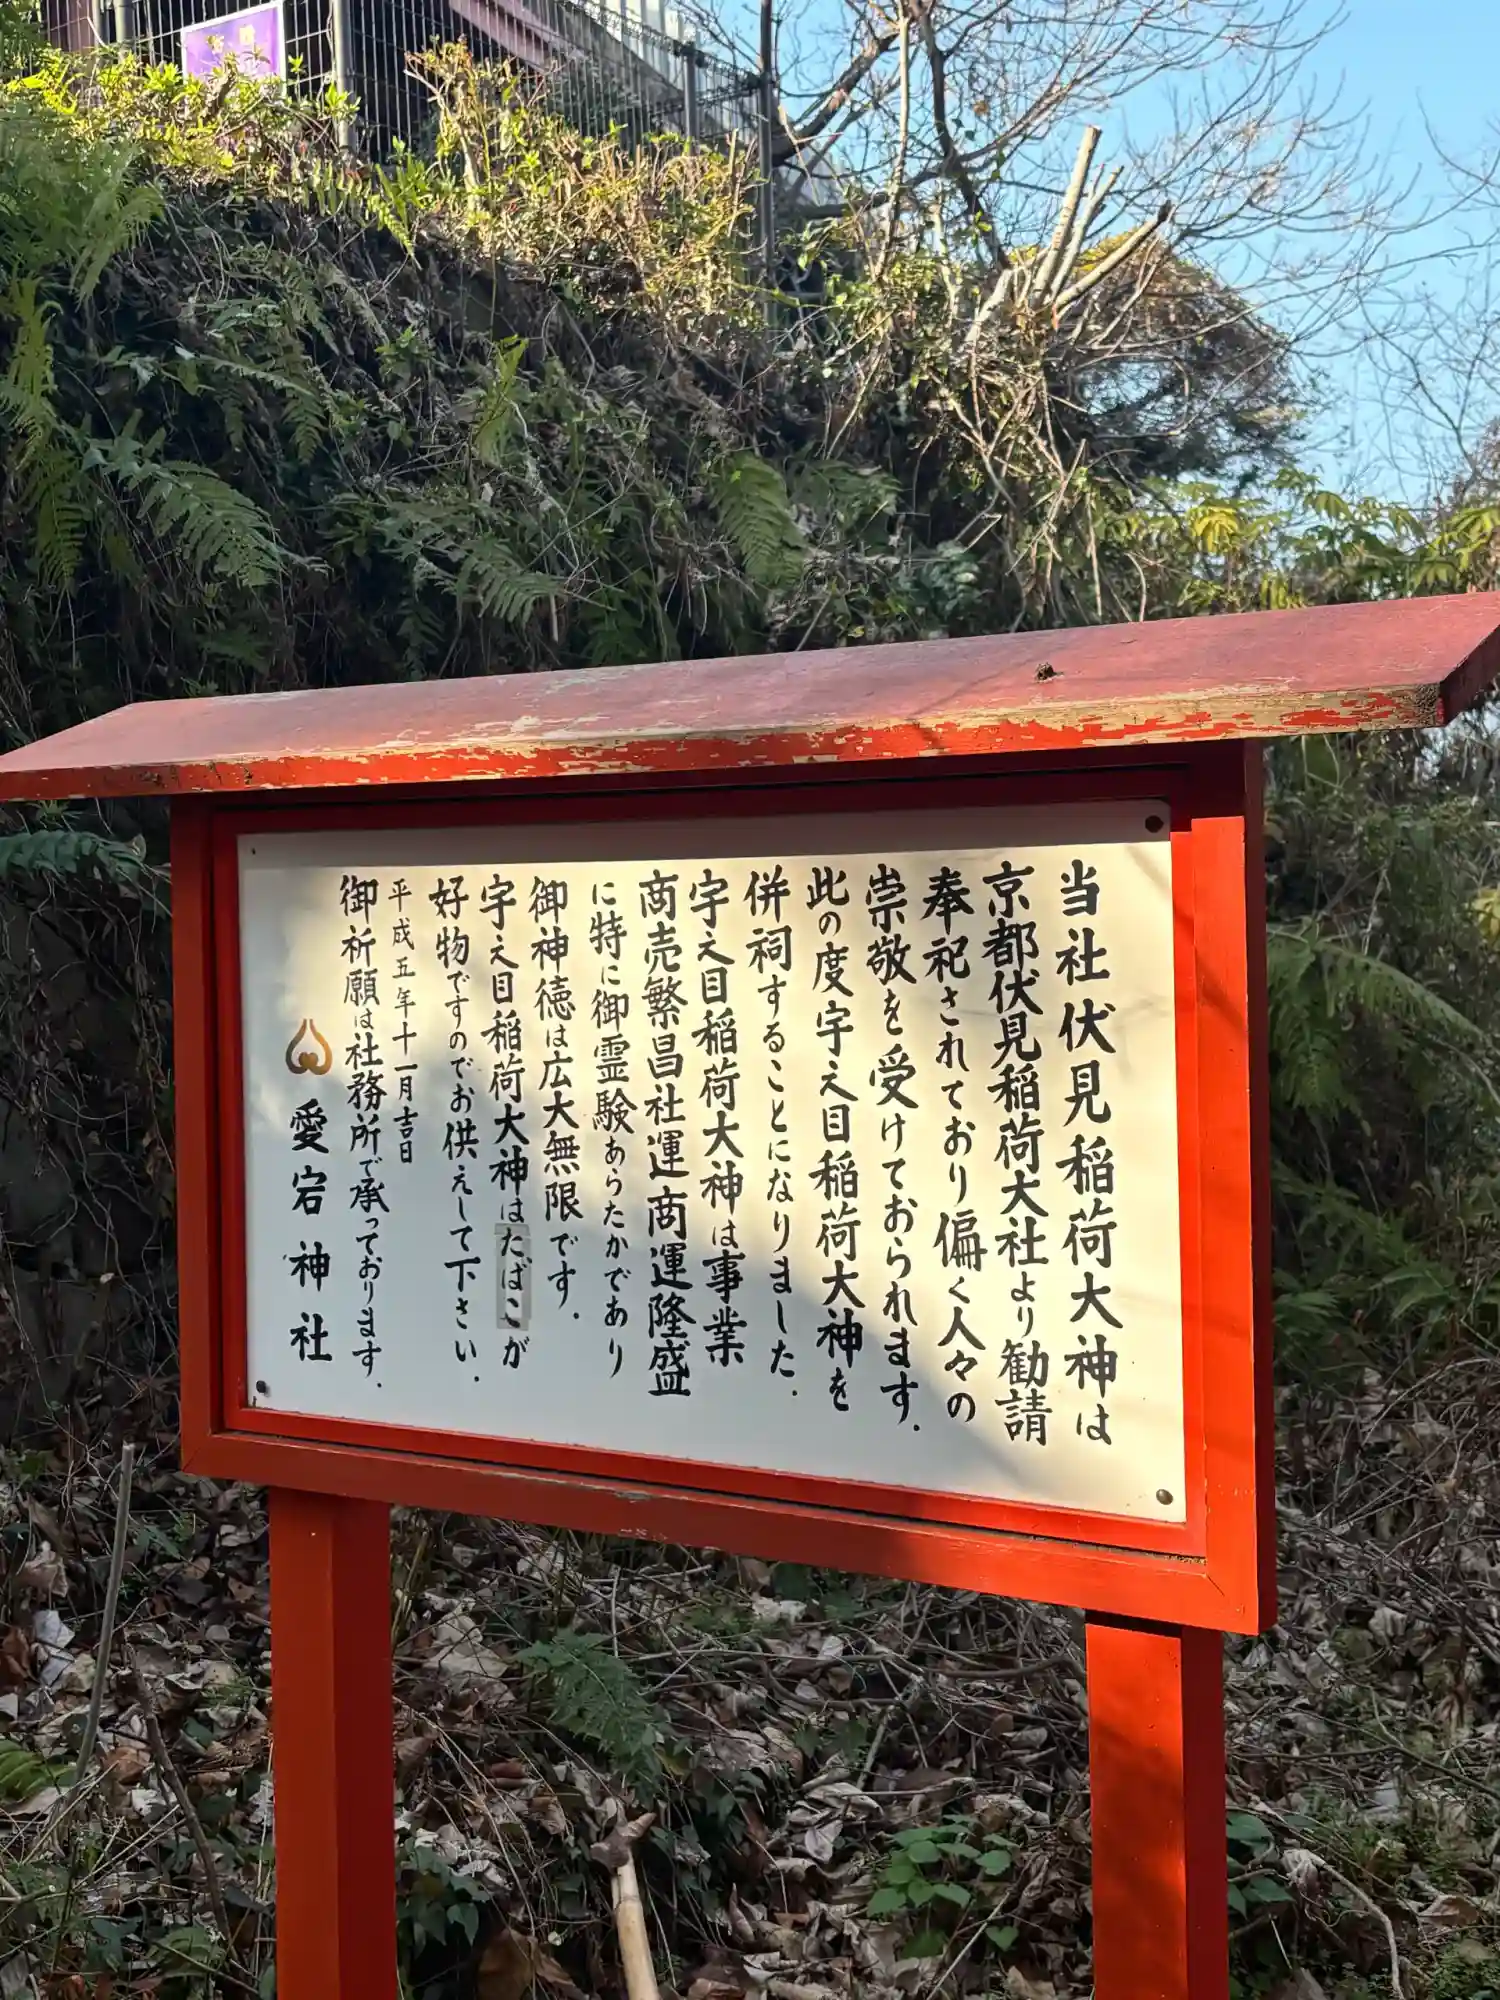 当社伏見稲荷大神は
京都伏見稲荷大社より勧請
奉祀されており偏く人々の
崇敬を受けておられます.
此の度宇之目稲荷大神を
併祠することになりました.
宇之目稲荷大神は事業
商売繁昌社運商運隆盛
に特に御霊験あらたかであり
御神徳は広大無限です.
宇之目稲荷大神はたばこが
好物ですのでお供えして下さい.
平成五年十一月吉日
御祈願は社務所で承っております.
愛宕神社